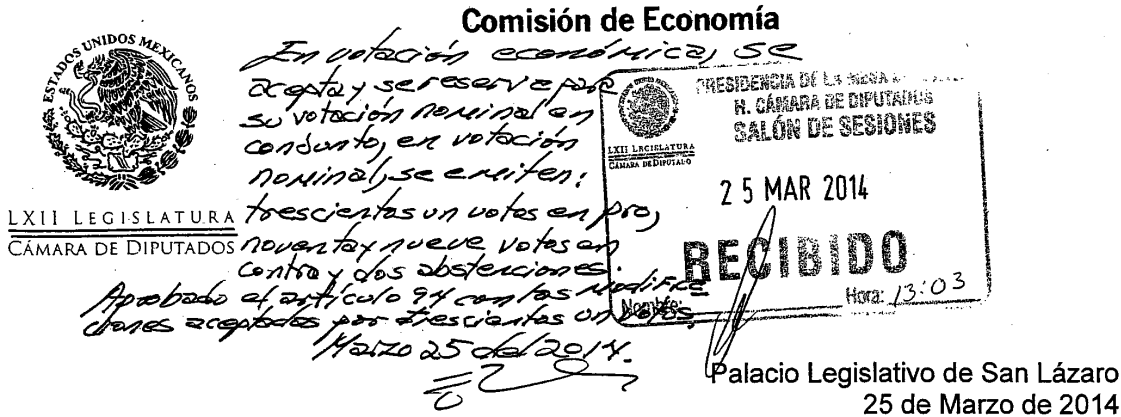 Comisión de Economía
ESTADOS UNIDOS MEXICANOS
LXII LEGISLATURA
CÁMARA DE DIPUTADOS
En votación económica, se
acepta y se reserva para
su votación nominal en
conjunto, en votación
nominal, se emiten:
trescientos un votos en pro,
noventa y nueve votos en
contra y dos abstenciones.
Aprobado el artículo 94 con las modifica
ciones aceptadas por trescientos un votos,
Marzo 25 del 2014.
PRESIDENCIA DE LA MESA
H. CÁMARA DE DIPUTADOS
SALÓN DE SESIONES
LXII LEGISLATURA
CÁMARA DE DIPUTADO
25 MAR 2014
RECIBIDO
Nombre:
Hora: 13:03
Palacio Legislativo de San Lázaro
25 de Marzo de 2014